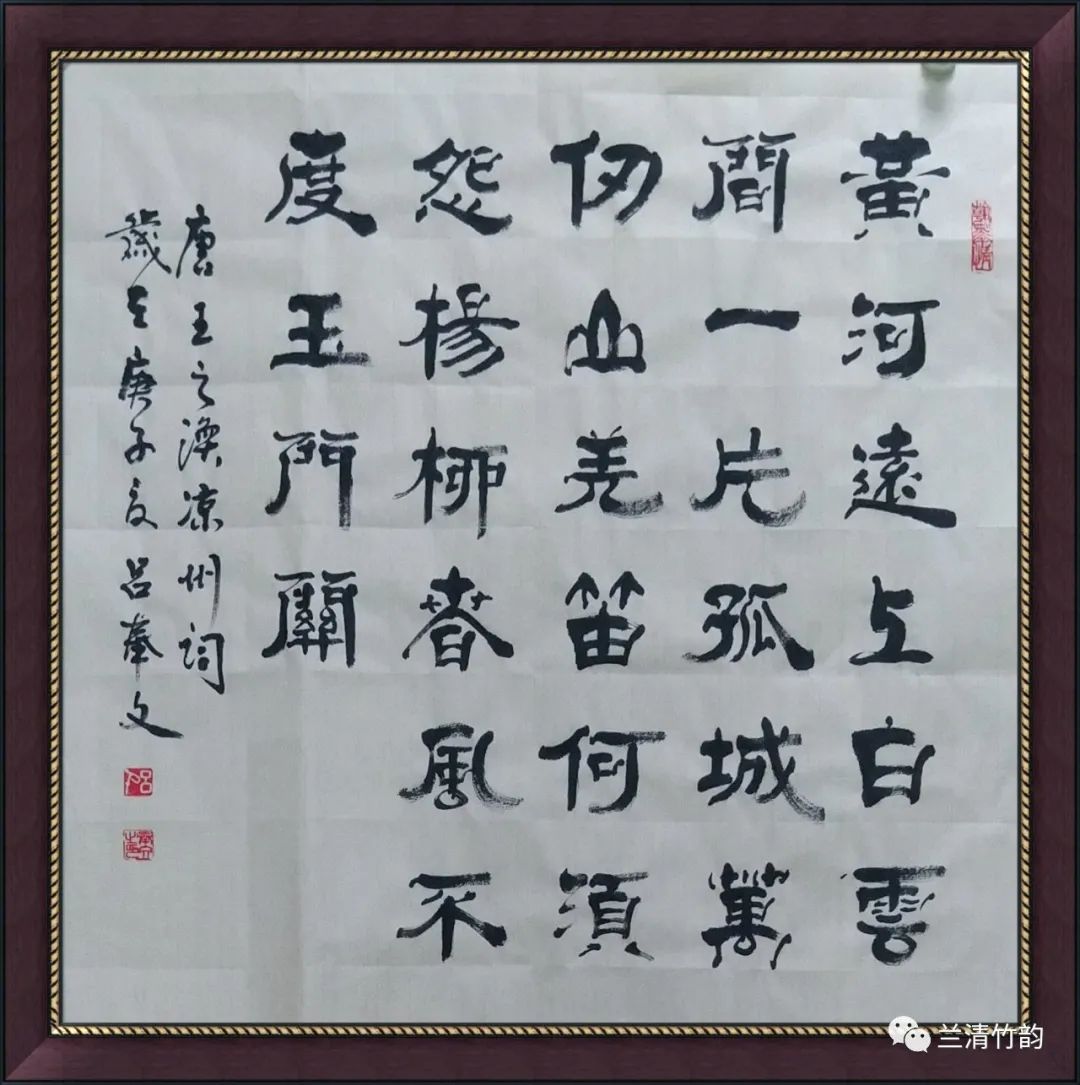 黃河遠上白雲
間一片孤城萬
仞山羌笛何須
怨楊柳春風不
度玉門關
唐王之渙凉州詞
歲在庚子夏吕奉文
兰清竹韵